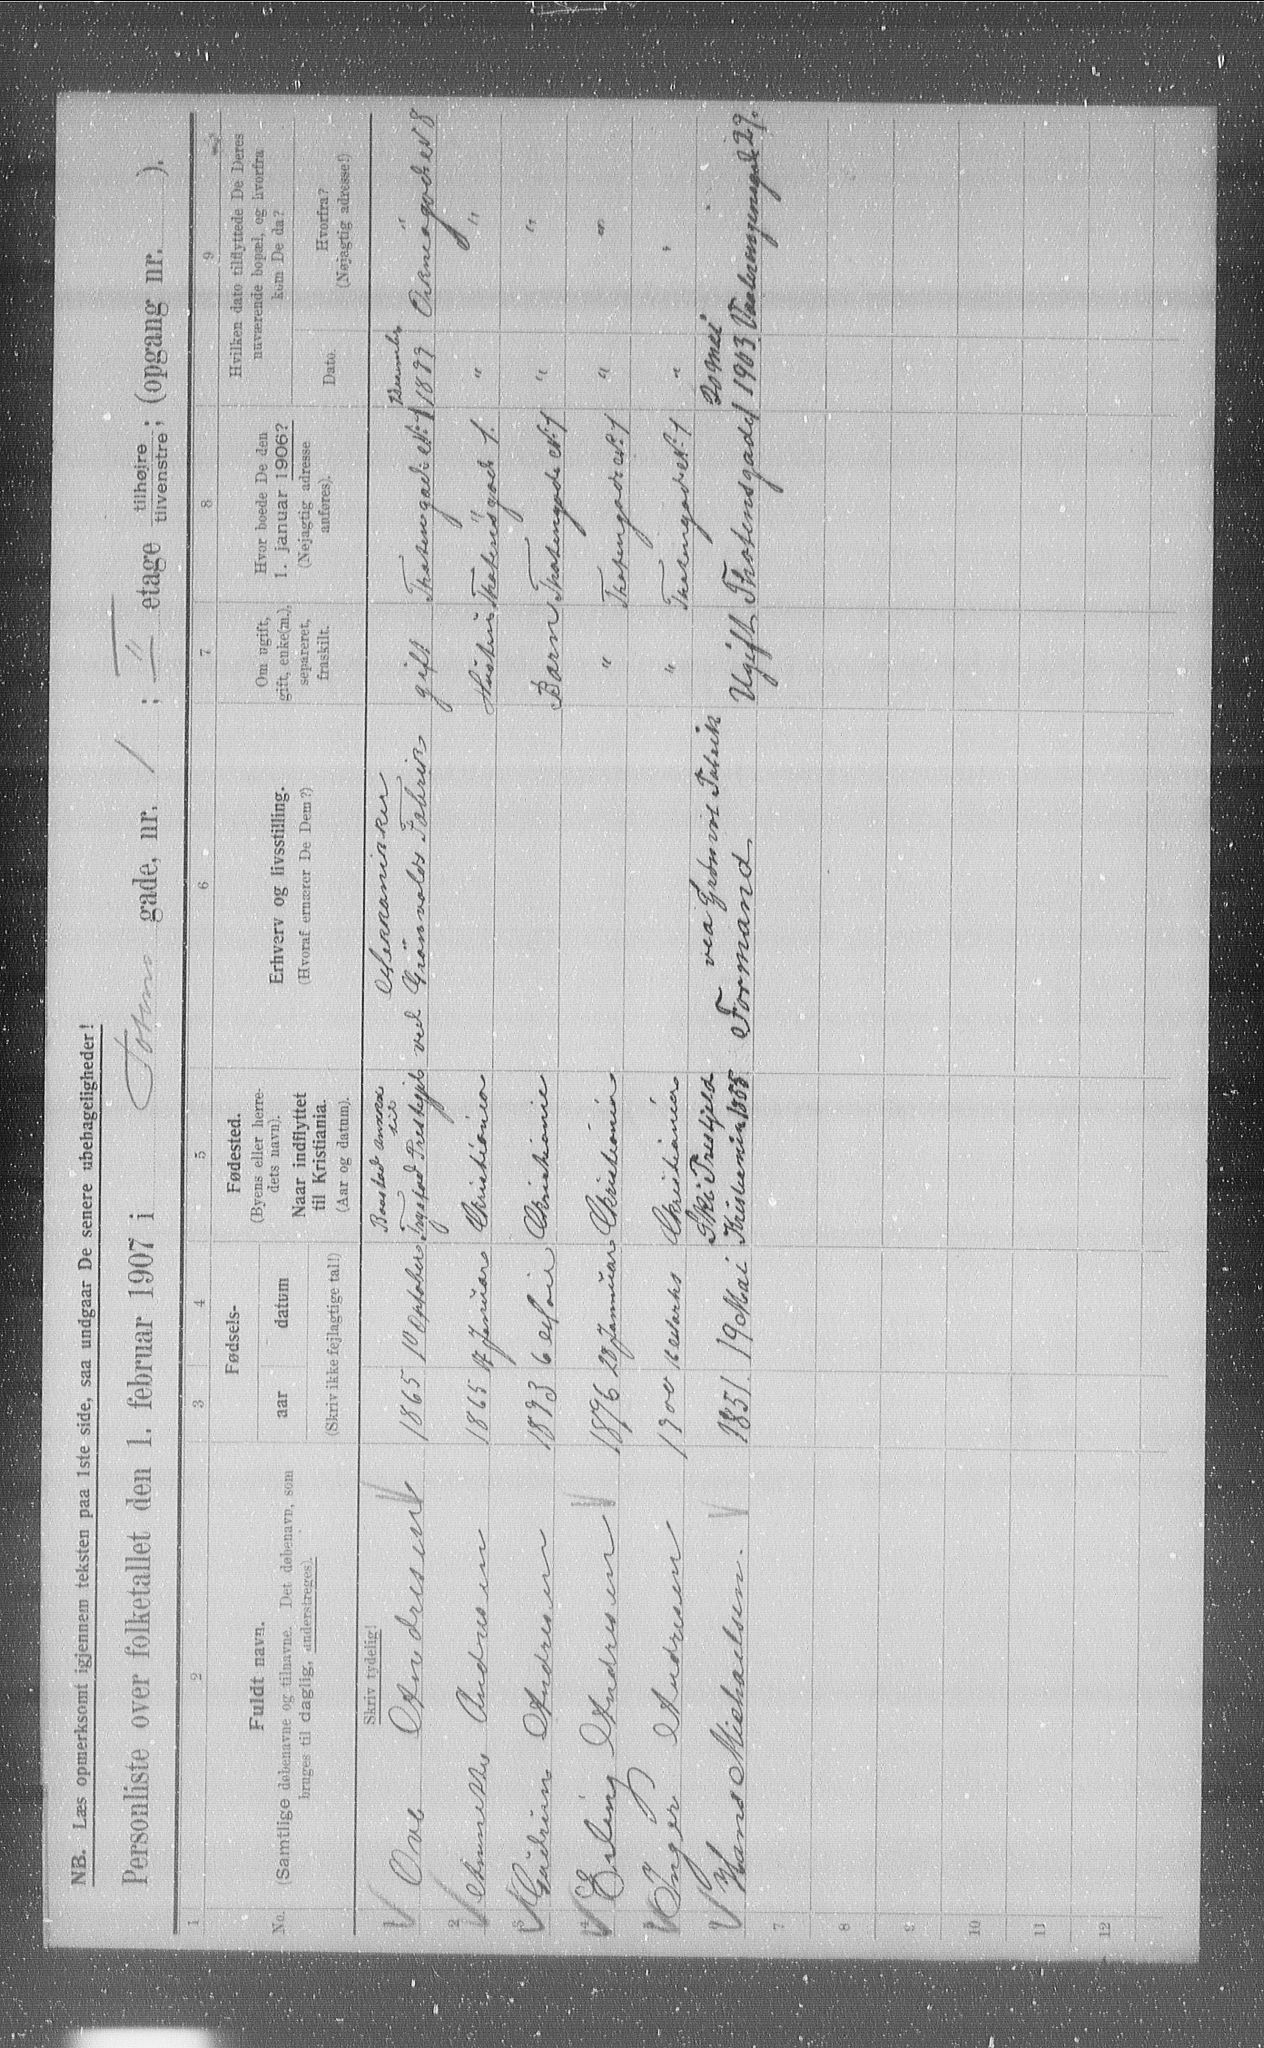 NB. Læs opmerksomt igjennem teksten paa 1ste side, saa undgaar De senere ubehageligheder!
Personliste over folketallet den 1. februar 1907 i Totens gade, nr. 1 ; II etage tilhøire tilvenstre; (opgang nr. ).
1 2 3 4 5 6 7 8 9
No.
Fuldt navn.
(Samtlige døbenavne og tilnavne. Det døbenavn, som
bruges til daglig, understreges).
Skriv tydelig!
Fødsels-
aar datum
(Skriv ikke fejlagtige tal!)
Fødested.
(Byens eller herre-
dets navn).
Naar indflyttet
til Kristiania.
(Aar og datum).
Erhverv og livsstilling.
(Hvoraf ernærer De Dem?)
Om ugift,
gift, enke(m),
separeret,
fraskilt.
Hvor boede De den
1. januar 1906?
(Nøjagtig adresse
anføres).
Hvilken dato tilflyttede De Deres
nuværende bopæl, og hvorfra
kom De da?
Dato.
Hvorfra?
(Nøjagtig adresse!)
Mekaniker December "
1 Ove Andresen 1865 1 Oktober Prestegjeld ved Grønvolds Fabrik gift Thotengade No 1 1899 No 8
2 Annette Andresen 1865 17 Januar Christiania Hustru Thotensgade 1. " "
3 Gudrun Andresen 1893 6 Christiania Barn Thotengade No 1 " "
4 Erling Andresen 1896 28 Januar Christiania " Thotengade No 1 " "
5 Inger Andresen 1900 16 Marts Christiania " Thotengade No 1 " "
Ski Prestgjeld ved Grønvold Fabrik 20 Mai
6 Hans Michaelsen. 1851. 19 Mai Kristiania Formand Ugift Thotensgade 1 1903 Vaalerenggade 29.
7
8
9
10
11
12